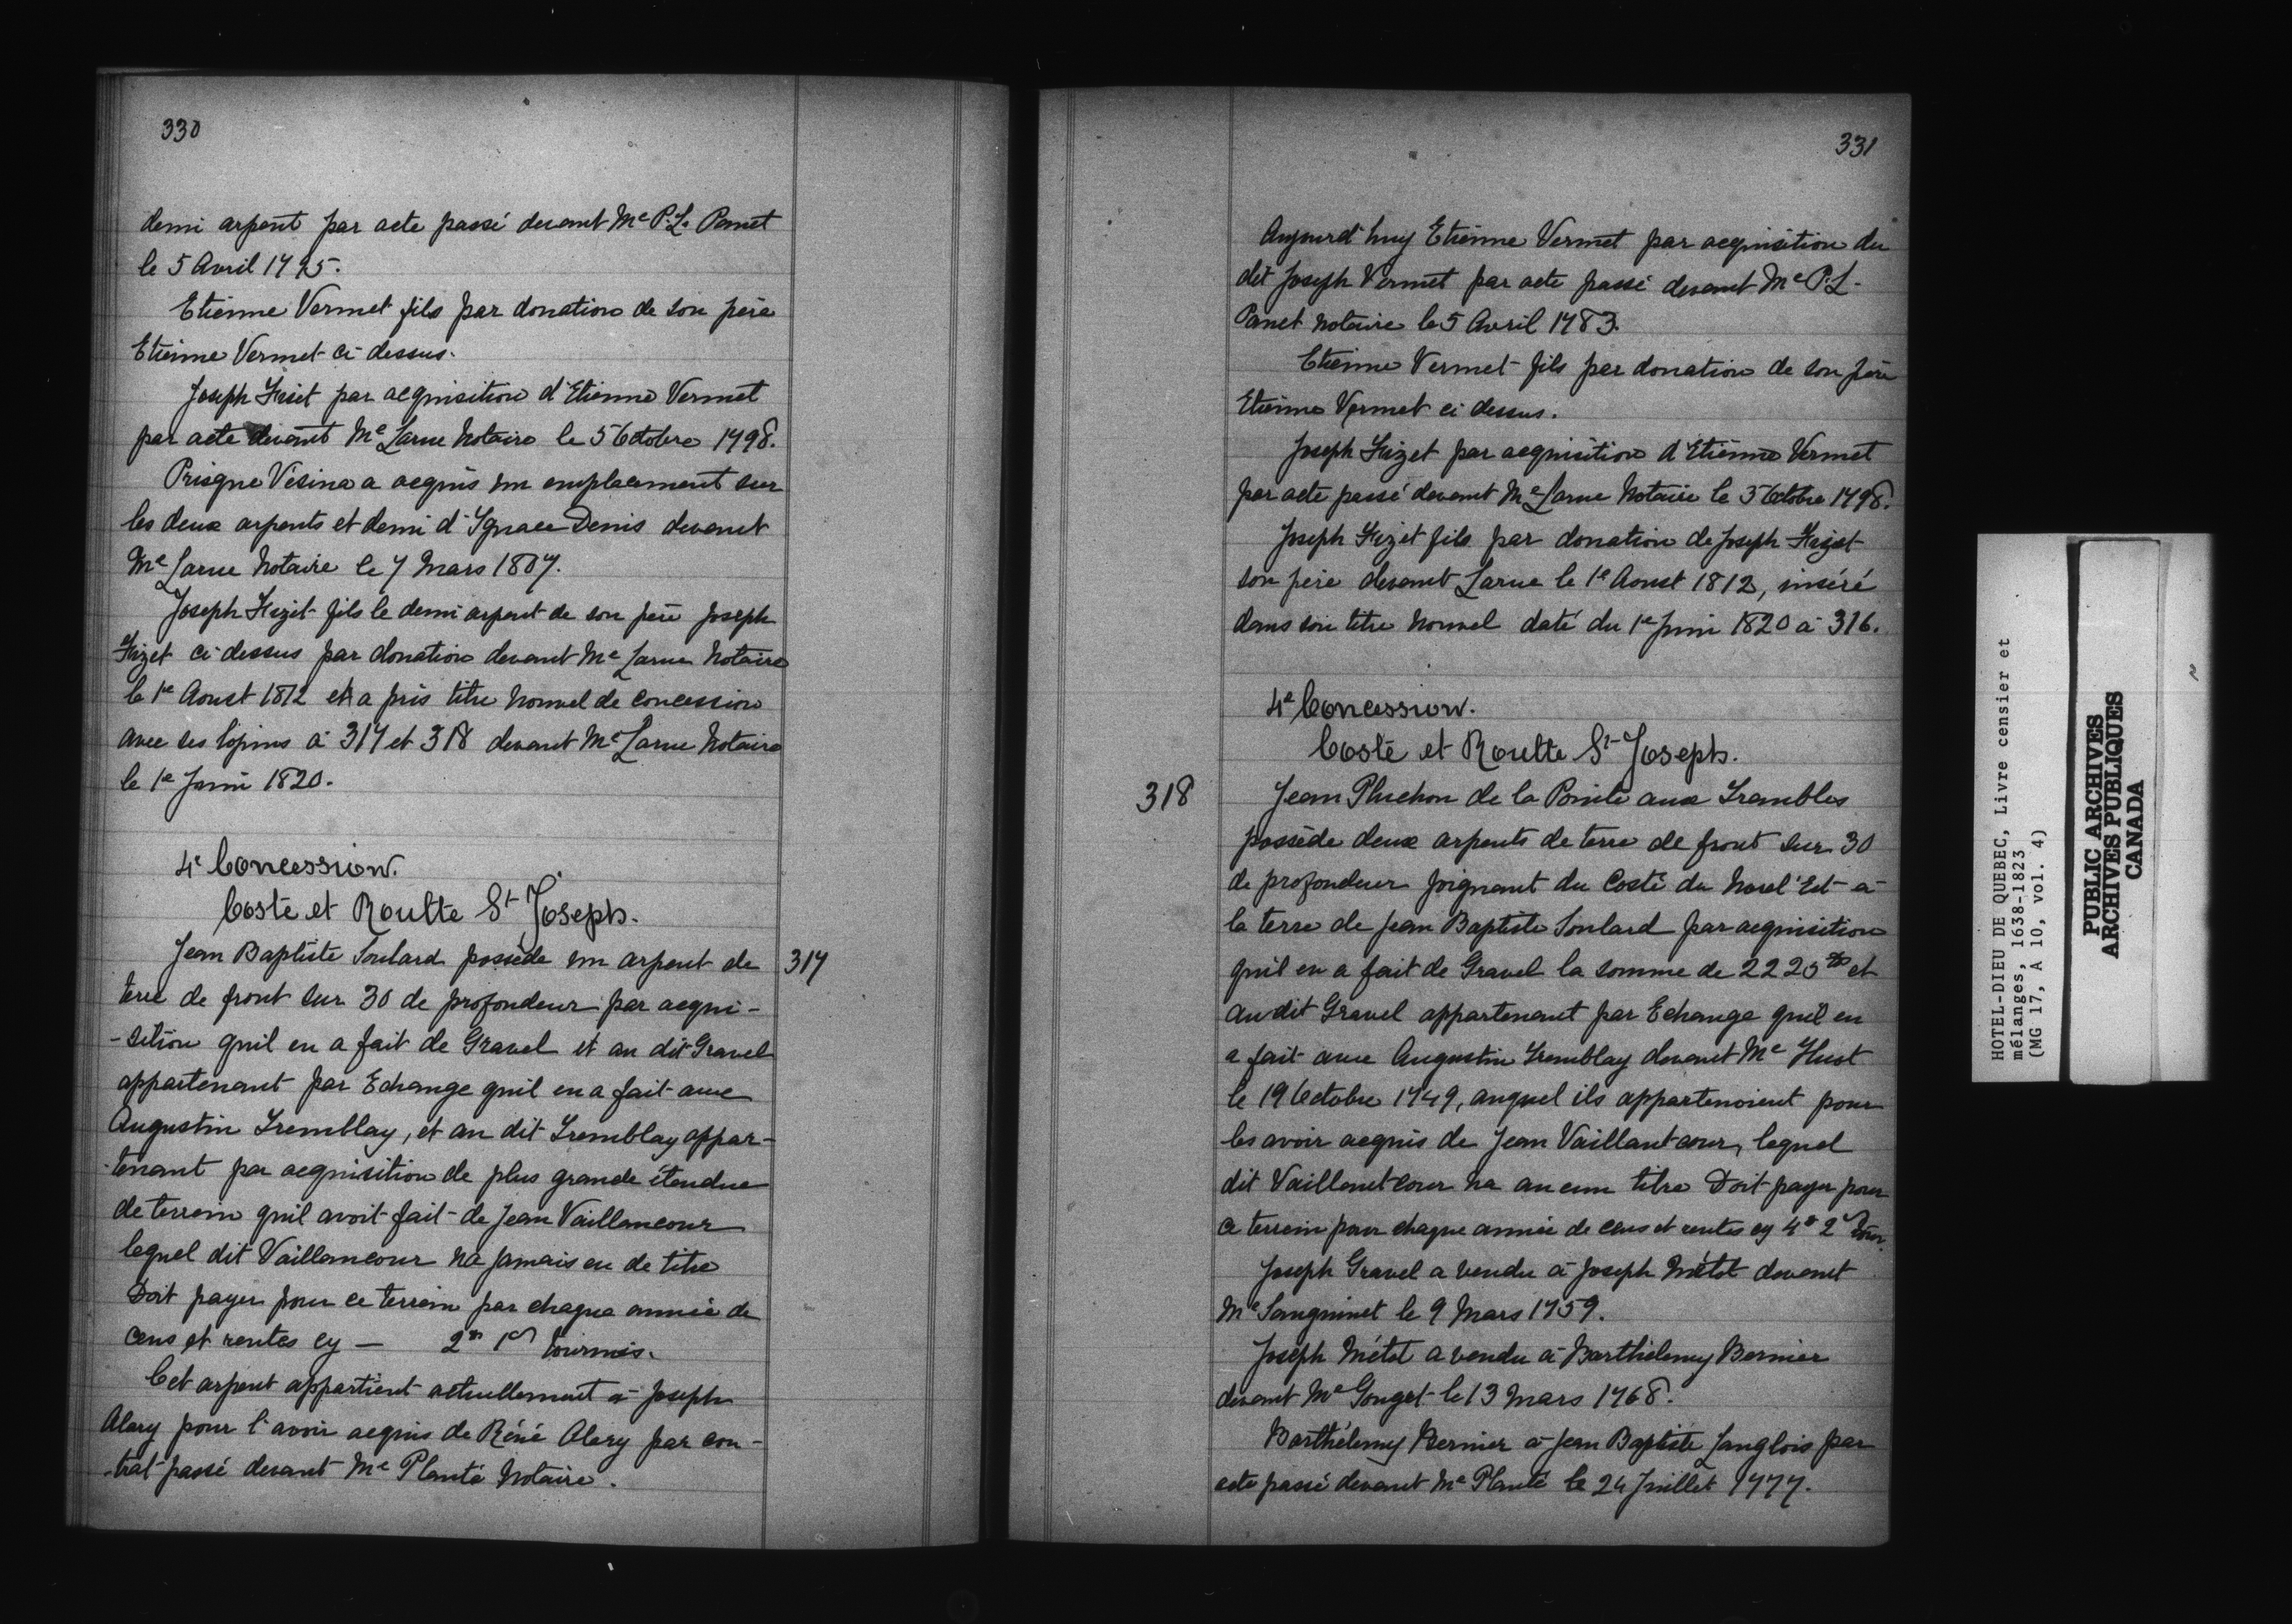 330
demi arpent par acte passé devant Me P. L. Panet
le 5 Avril 1795.
Etienne Vermet fils par donation de son père
Etienne Vermet ci dessus.
Joseph Fiset par acquisition d'Etienne Vermet
par acte devant Me Larue Notaire le 5 Octobre 1798.
Prisque Vésina a acquis un emplacement sur
les deux arpents et demi d'Ignace Denis devant
Me Larue Notaire le 7 Mars 1807.
Joseph Fizet fils le demi arpent de son père Joseph
Fizet ci dessus par donation devant Me Larue Notaire
le 1e Aoust 1812 et a pris titre Nouvel de concession
avec ses lopins à 317 et 318 devant Me Larue Notaire
le 1e Juin 1820.
4e Concession.
Costé et Routte St Joseph.
317
Jean Baptiste Soulard possède un arpent de
terre de front sur 30 de profondeur par acqui-
-sition qu'il en a fait de Gravel et au dit Gravel
appartenant par Echange qu'il en a fait avec
Augustin Tremblay, et au dit Tremblay appar-
-tenant par acquisition de plus grande étendue
de terrein qu'il avoit fait de Jean Vaillancour
lequel dit Vaillancour n'a jamais eu de titre
Doit payer pour ce terrein par chaque année de
cens et rentes cy — 2tt 1s tournois.
Cet arpent appartient actuellement à Joseph
Alary pour l'avoir acquis de Réné Alary par con-
-trat passé devant Me Planté Notaire.
331
Aujourd'huy Etienne Vermet par acquisition du
dit Joseph Vermet par acte passé devant Me P. L.
Panet Notaire le 5 Avril 1783.
Etienne Vermet fils par donation de son père
Etienne Vermet ci dessus.
Joseph Fizet par acquisition d'Etienne Vermet
par acte passé devant Me Larue Notaire le 5 Octobre 1798.
Joseph Fizet fils par donation de Joseph Fizet
son père devant Larue le 1e Aoust 1812, inséré
dans son titre Nouvel daté du 1e Juin 1820 à 316.
4e Concession.
Costé et Routte St Joseph.
318
Jean Pluchon de la Pointe aux Trembles
possède deux arpents de terre de front sur 30
de profondeur joignant du Costé du Nord'Est à
la terre de Jean Baptiste Soulard par acquisition
qu'il en a fait de Gravel la somme de 2225tt et
au dit Gravel appartenant par Echange qu'il en
a fait avec Augustin Tremblay devant Me
le 19 Octobre 1749, auquel ils appartenoient pour
les avoir acquis de Jean Vaillantcour, lequel
dit Vaillantcour n'a aucun titre Doit payer pour
ce terrein pour chaque année de cens et rentes cy 4tt 2s tour.
Joseph Gravel a vendu à Joseph Métot devant
Me Sanguinet le 9 Mars 1759.
Joseph Métot a vendu à Barthélemy Bernier
devant Me Gouget le 13 Mars 1768.
Barthélemy Bernier à Jean Baptiste Langlois par
acte passé devant Me Planté le 24 Juillet 1777.
HOTEL-DIEU DE QUEBEC, Livre censier et
mélanges, 1638-1823
(MG 17, A 10, vol. 4)
PUBLIC ARCHIVES
ARCHIVES PUBLIQUES
CANADA